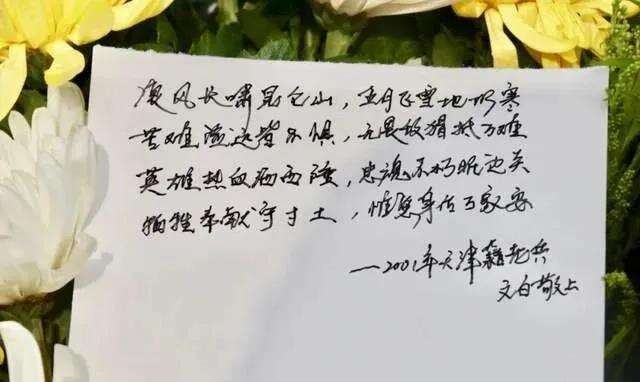 风长啸昆仑山，五月飞雪地仍寒
苦难皆不惧，无畏敌猖抵万难
英雄热血洒西陲，忠魂不朽眠边关
牺牲奉献守寸土，惟愿身万家安
—2001年天津籍老兵
文白敬上